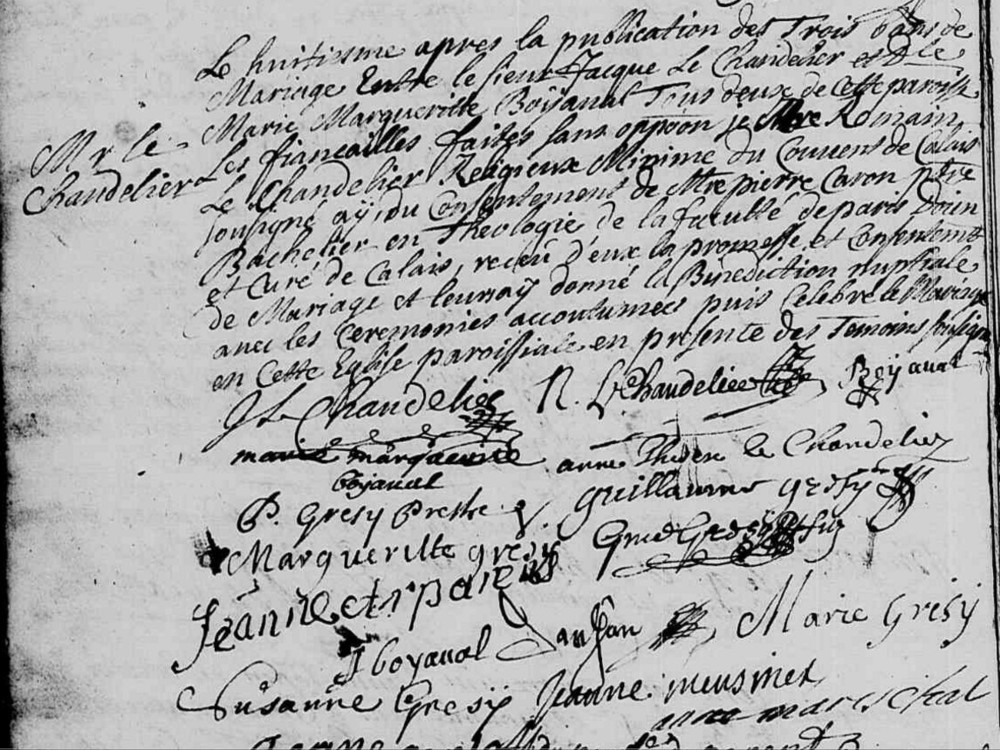 Le huitisme apres la publication des Trois bans de
Mariage Entre le sieur Jacque Le Chandelier et Dlle
Marie Margueritte Boÿaval Tous deux de cette paroisse
Les fiancailles faites sans oppoon je Romain
Mr le
Chandelier
Le Chandelier Religieux Minime du Couvent de Calais
sousigné aÿ du Consentement de Mtre pierre Caron ptre
Bachelier en Theologie de la faculté de paris Doien
et Curé de Calais, receu d'eux la promesse et Consentemt
de Mariage et leursaÿ donné la Bénédiction nuptiale
avec les Ceremonies accoutumées puis Celebré le Mariage
en Cette Eglise paroissiale en presence des Temoins
J L Chandelier R. Le Chandelier Boÿaval
marie margueritte anne le Chandelier
boyaval
P. Gresy Prestre guillaume gresy
Margueritte gresy
Jeanne
J boyaval Marie Gresy
Susanne Gresÿ Jeanne meusinet
mareschal